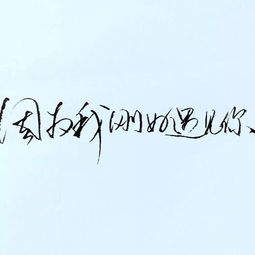 因为我刚好遇见你